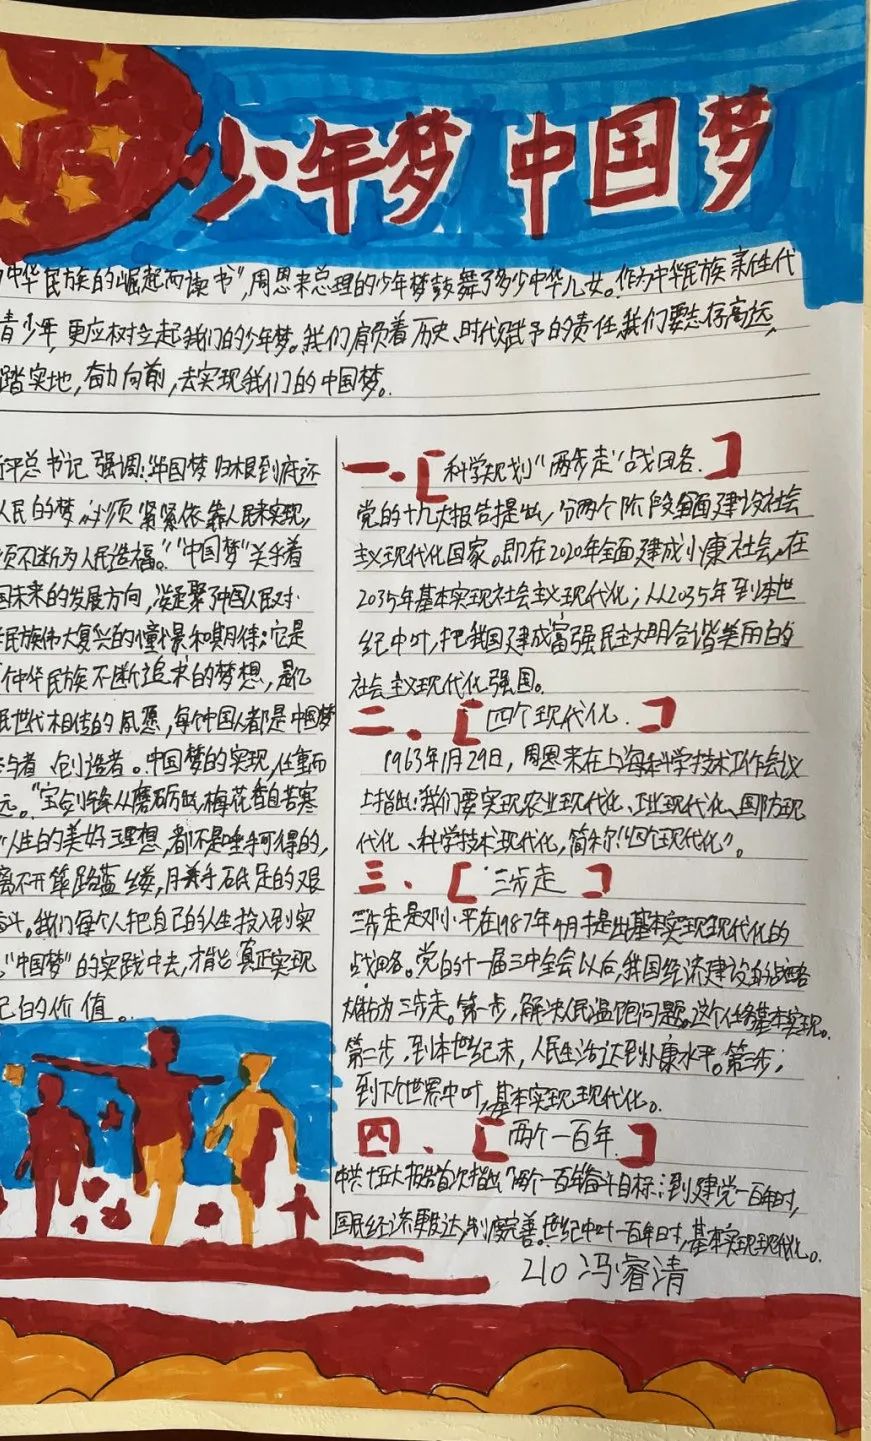 少年梦 中国梦
中华民族的崛起而读书”,周恩来总理的少年梦鼓舞了多少中华儿女。作为中华民族新生代
青少年,更应树立起我们的少年梦。我们肩负着历史、时代赋予的责任,我们要志存高远,
踏实地,奋力向前,去实现我们的中国梦。
平总书记强调:“中国梦归根到底还
人民的梦,必须紧紧依靠人民来实现,
须不断为人民造福。”“中国梦”关乎着
国未来的发展方向,凝聚了中国人民对
民族伟大复兴的憧憬和期待;它是
个中华民族不断追求的梦想,是亿
民世代相传的夙愿,每个中国人都是中国梦
与者、创造者。中国梦的实现,任重而
远。“宝剑锋从磨砺出,梅花香自苦寒
”人生的美好理想,都不是唾手可得的,
离不开筚路蓝缕,胼手胝足的艰
奋斗。我们每个人把自己的人生投入到实
“中国梦”的实践中去,才能真正实现
己的价值。
一、【科学规划“两步走”战略】
党的十九大报告提出,分两个阶段全面建设社会
主义现代化国家。即在2020年全面建成小康社会,在
2035年基本实现社会主义现代化;从2035年到本世
纪中叶,把我国建成富强民主文明合谐美丽的
社会主义现代化强国。
二、【四个现代化】
1963年1月29日,周恩来在上海科学技术工作会议
上指出:我们要实现农业现代化、工业现代化、国防现
代化、科学技术现代化,简称“四个现代化”。
三、【三步走】
三步走是邓小平在1987年4月提出基本实现现代化的
战略。党的十一届三中全会以后,我国经济建设的战略
大体分为三步走。第一步,解决人民温饱问题。这个任务基本实现。
第二步,到本世纪末,人民生活达到小康水平。第三步;
到下个世界中叶,基本实现现代化。
四、【两个一百年】
中共十五大报告首次指出“两个一百年”奋斗目标:到建党一百年时,
国民经济更发达,制度完善。世纪中叶一百年时,基本实现现代化。
210 冯睿清